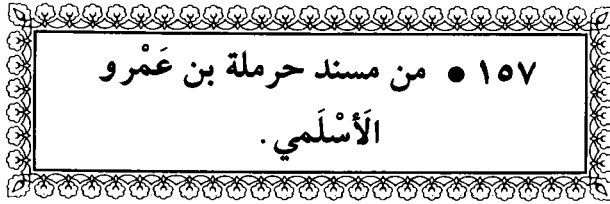 ١٥٧ ● من مسند حرملة بن عَمْرو
الَأسْلَمي .